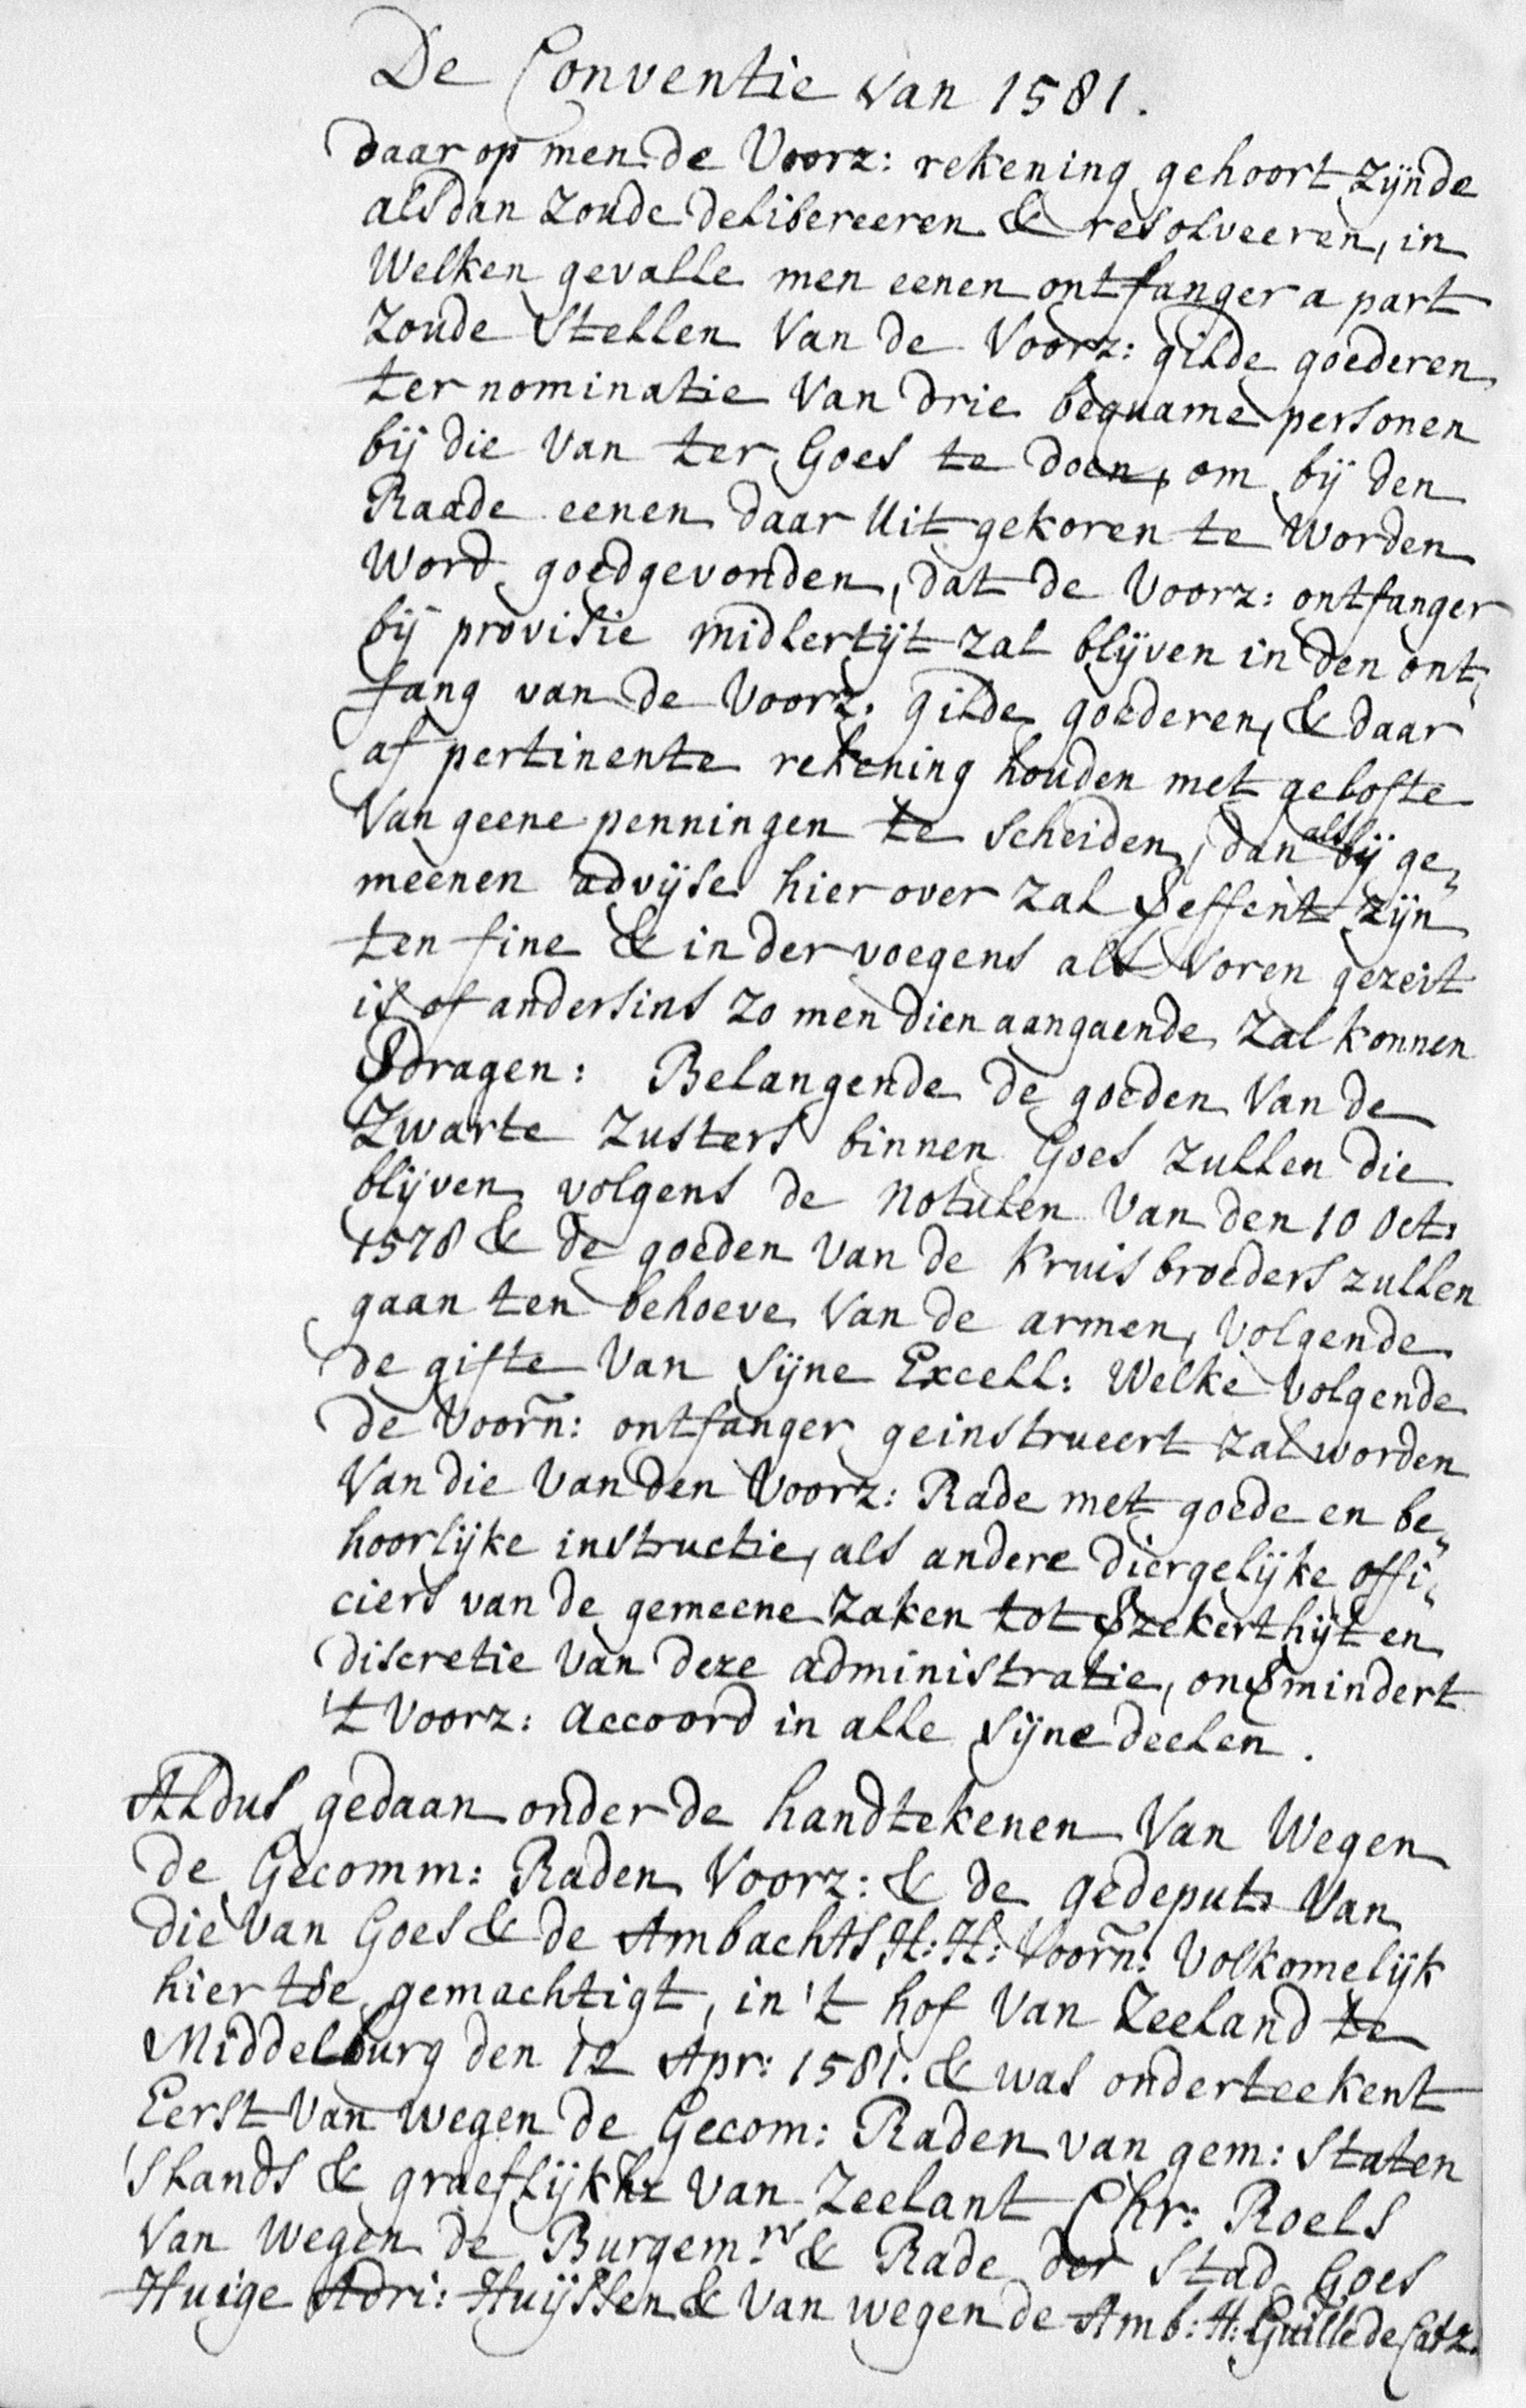 De Conventie van 1581.
daar op men de Voorz: rekening gehoort zijnde
alsdan Zoude delibereeren & resolveeren, in
Welken gevalle men eenen ontfanger a part
Zoude Stellen Van de Voorz: gilde goederen
ter nominatie Van drie bequame personen
bij die Van ter Goes te doen, om bij den
Raade eenen daar Uit gekoren te Worden
Word goedgevonden, dat de Voorz: ontfanger
bij provisie midlertijt zal blijven in den ont„
fang van de Voorz. Gilde goederen, & daar
af pertinente rekening houden met gelofte
Van geene penningen te Scheiden, dan als bij ge„
meenen advijse hier over zal veffent zijn
ten fine & in der voegens als Voren gezeit
is of andersins zo men dien aangaende zal konnen
Vdragen: Belangende de goeden Van de
Zwarte Zusters binnen Goes zullen die
blijven volgens de Notulen Van den 10 Oct:
1578 & de goeden Van de Kruisbroeders zullen
gaan ten behoeve Van de armen, Volgende
de gifte Van Sijne Excell: Welke Volgende
de Voorn̄: ontfanger geinstrueert zal worden
Van die Van den Voorz: Rade met goede en be„
hoorlijke instructie, als andere diergelijke offi„
ciers van de gemeene Zaken tot Vzekerthijt en
discretie Van deze administratie, onvmindert
't Voorz: Accoord in alle Sijne deelen.
Aldus gedaan onder de handtekenen Van Wegen
de Gecomm: Raden Voorz: & de gedeput: Van
die Van Goes & de Ambachts H: H: Voorn̄: Volkomelijk
hier toe gemachtigt, in 't hof Van Zeeland te
Middelburg den 12 Apr: 1581. & was onderteekent
Eerst Van wegen de Gecom: Raden van gem: Staten
'Slands & graeflijkhz Van Zeelant Chr: Roels
Van Wegen de Burgemrs & Rade der Stad Goes
Huige Adri: Huijssen & Van wegen de Amb: H: Guille de Catz.